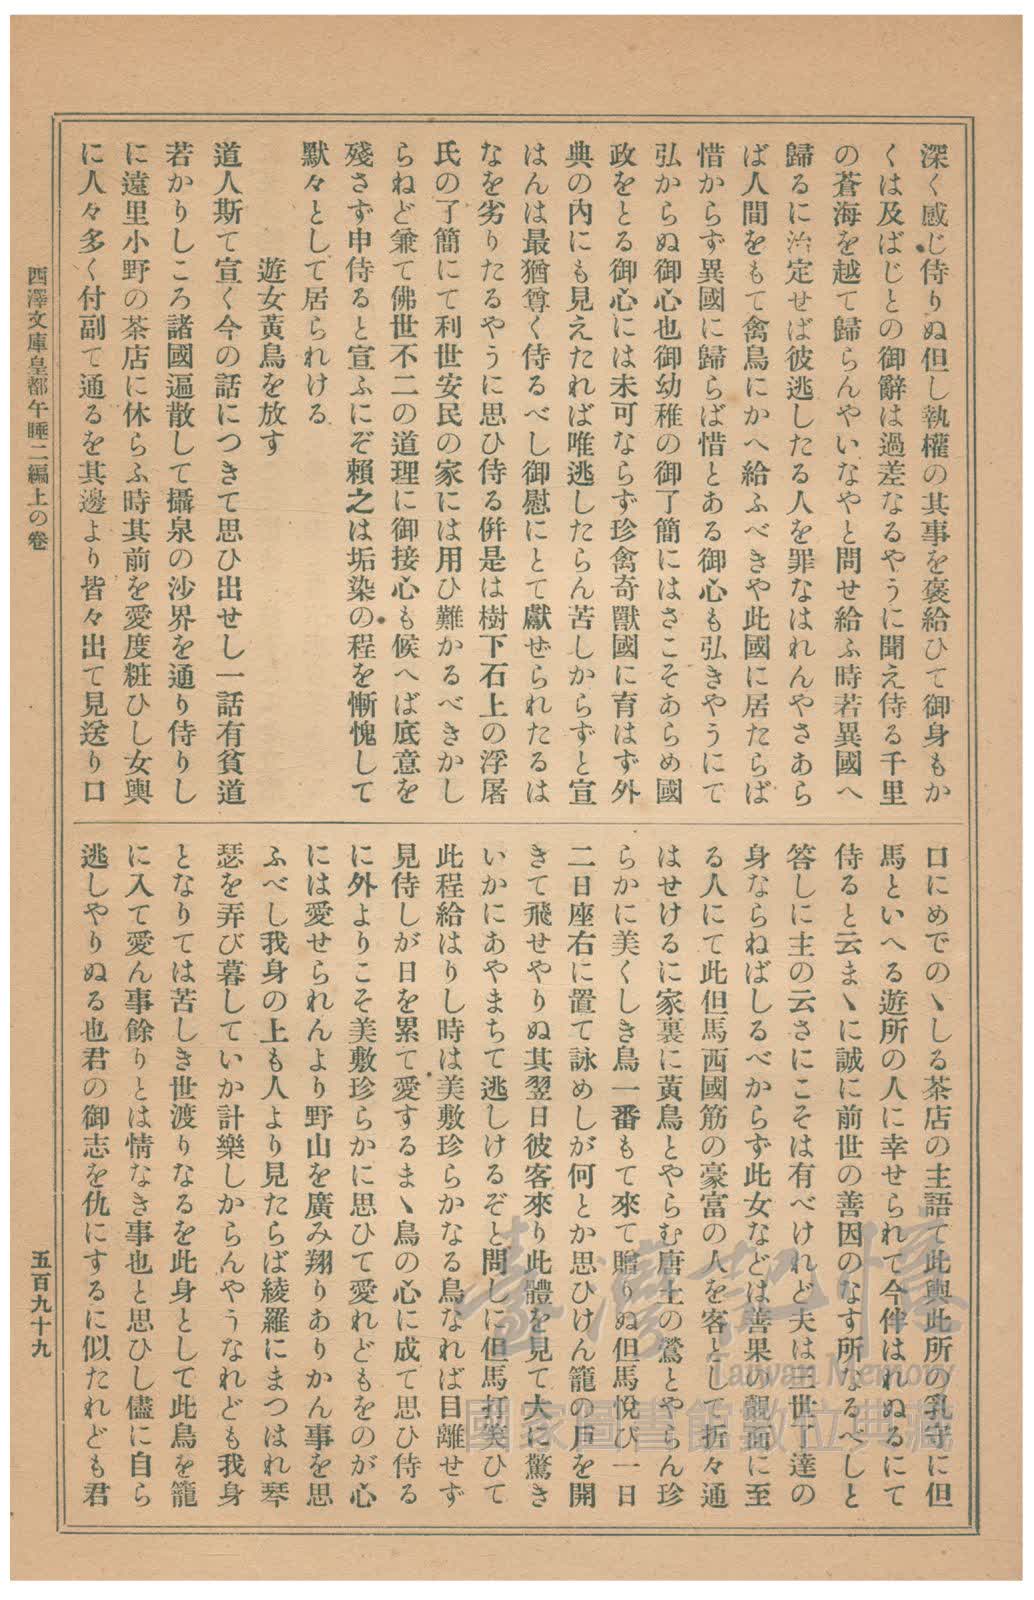 深く感じ侍りぬ但し執權の其事を褒給ひて御身もか
くは及ばじとの御辭は過差なるやうに聞え侍る千里
の蒼海を越て歸らんやいなやと問せ給ふ時若異國へ
歸るに治定せば彼逃したる人を罪なはれんやさあら
ば人間をもて禽鳥にかへ給ふべきや此國に居たらば
惜からず異國に歸らば惜とある御心も弘きやうにて
弘からぬ御心也御幼稚の御了簡にはさこそあらめ國
政をとる御心には未可ならず珍禽奇獸國に育はず外
典の内にも見えたれば唯逃したらん苦しからずと宣
はんは最猶尊く侍るべし御慰にとて獻ぜられたるは
なを劣りたるやうに思ひ侍る併是は樹下石上の浮屠
氏の了簡にて利世安民の家には用ひ難かるべきかし
らねど兼て佛世不二の道理に御接心も候へば底意を
殘さず申侍ると宣ふにぞ賴之は垢染の程を慚愧して
默々として居られける
遊女黃鳥を放す
道人斯て宣く今の話につきて思ひ出せし一話有貧道
若かりしころ諸國遍散して攝泉の沙界を通り侍りし
に遠里小野の茶店に休らふ時其前を愛度粧ひし女輿
に人々多く付副て通るを其邊より皆々出て見送り口
口にめでのヽしる茶店の主語て此輿此所の乳守に但
馬といへる遊所の人に幸せられて今伴はれぬるにて
侍ると云まヽに誠に前世の善因のなす所なるべしと
答しに主の云さにこそは有べけれど夫は三世了達の
身ならねばしるべからず此女などは善果の覿面に至
る人にて此但馬西國筋の豪富の人を客として折々通
はせけるに家裏に黃鳥とやらむ唐土の鶯とやらん珍
らかに美くしき鳥一番もて來て贈りぬ但馬悅び一日
二日座右に置て詠めしが何とか思ひけん籠の戸を開
きて飛せやりぬ其翌日彼客來り此體を見て大に驚き
いかにあやまちて逃しけるぞと問しに但馬打笑ひて
此程給はりし時は美敷珍らかなる鳥なれば目離せず
見侍しが日を累て愛するまヽ鳥の心に成て思ひ侍る
に外よりこそ美敷珍らかに思ひて愛れどもをのが心
には愛せられんより野山を廣み翔りありかん事を思
ふべし我身の上も人より見たらば綾羅にまつはれ琴
瑟を弄び暮していか計樂しからんやうなれども我身
となりては苦しき世渡りなるを此身として此鳥を籠
に入て愛ん事餘りとは情なき事也と思ひし儘に自ら
逃しやりぬる也君の御志を仇にするに似たれども君
西澤文庫皇都午睡二編上の卷
五百九十九
臺灣記憶
Taiwan Memory
國家圖書館數位典藏